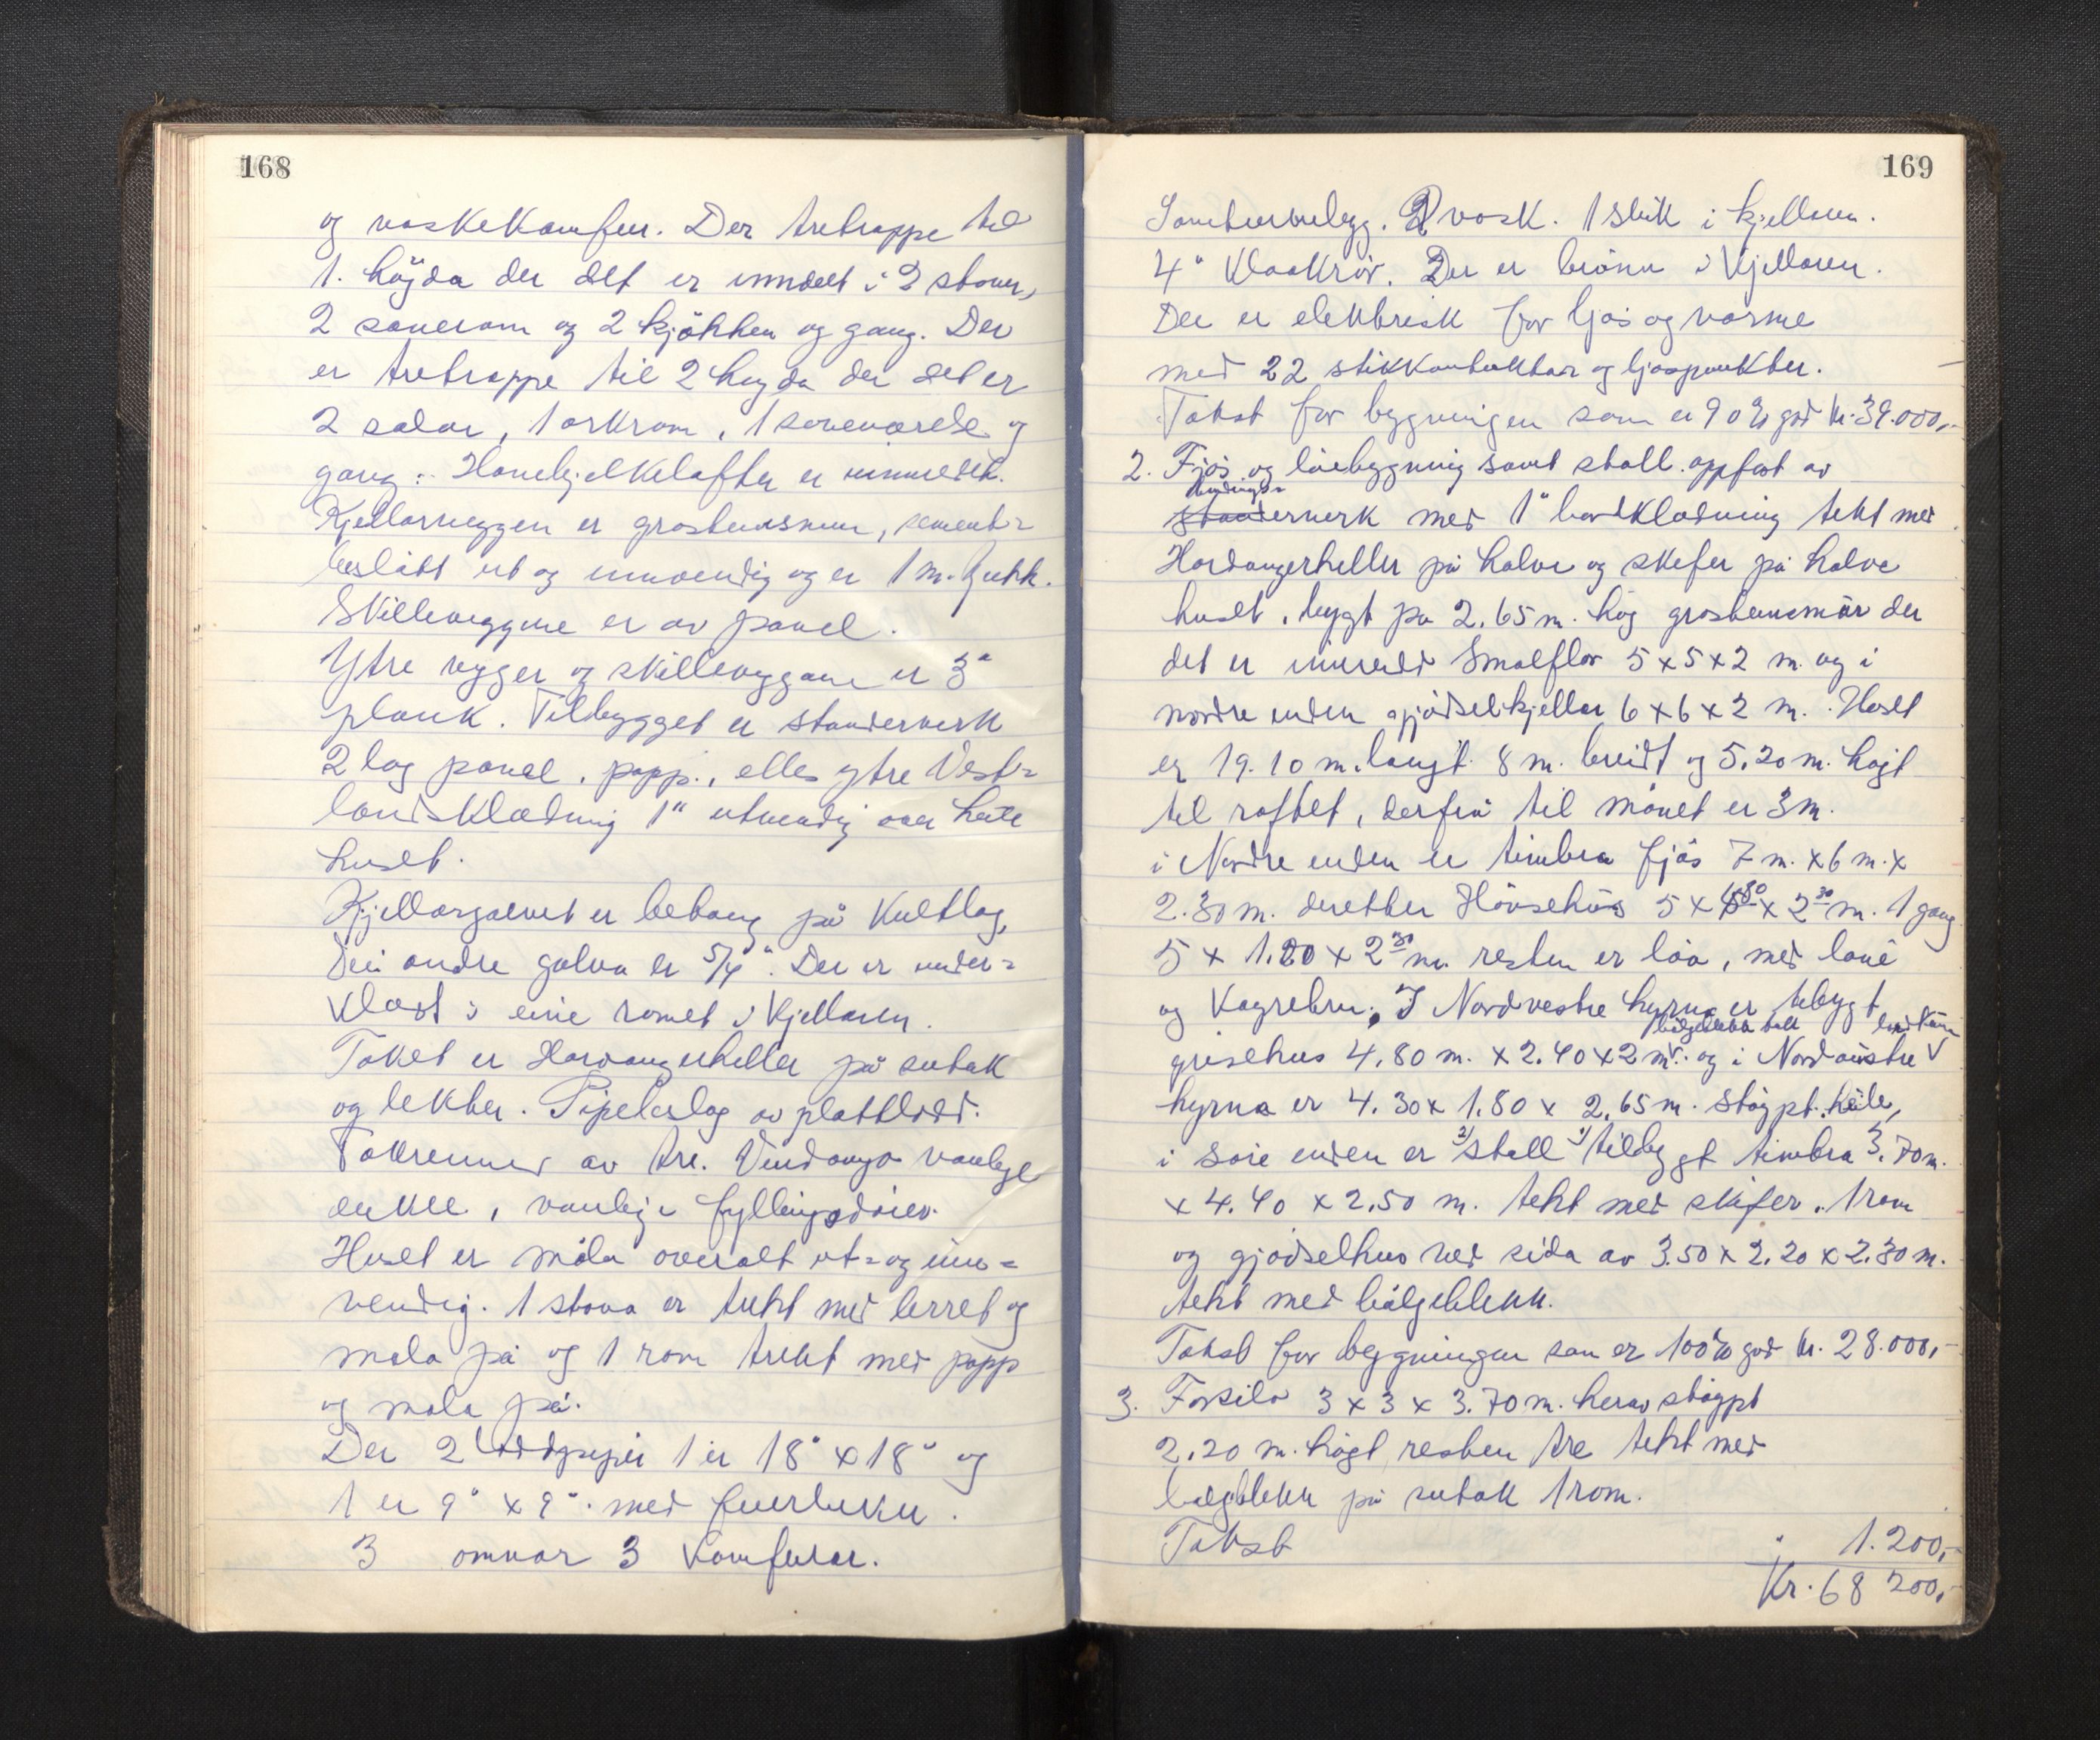 168
og vaskekomfur. Der tretrappe til
1. högda der det er inndelt i 2 stover,
2 soverom og 2 kjökken og gang. Der
er tretrappe til 2 högda der det er
2 salar, 1 arkrom, 1 soveværelse og
gang. Hanebjelkeloftet er innreidt.
Kjellarveggen er grasteinsmur, sement=
beslått ut og innvendig og er 1 m. tjukk.
Skilleveggene er av panel.
Ytre vegger og skilleveggane er 3"
plank. Tilbygget er standerverk
2 lag panel, papp, elles ytre Vest=
landsklædning 1" utvendig over heile
huset.
Kjellargolvet er betong på kultlag,
dei andre golva er 5/4". Der er under=
klædt i eine romet i Kjellaren.
Taket er Hardangerheller på sutak
og lekter. Pipebeslag av plattbly.
Takrenner av tre. Vindauga vanlege
enkle, vanlege fyllingsdörer.
Huset er måla overalt ut= og inn=
vendig. 1 stova er trekt med lerret og
mala på og 1 rom trekt med papp
og mala på.
Der 2 1 er 18" x 18" og
1 er 9" x 9". med feierluke.
3 omnar 3 komfurar.
169
2 vask. 1 sluk i kjellaren.
4" Kloakrör. Der er brönn i Kjellaren.
Der er elektrisk for ljos og varme
med 22 stikkontaktar og ljospunkter.
Takst for bygningen som er 90% god kr. 39.000,-
2. Fjös og löebygning samt stall. oppfört av
bindings=
standerverk med 1" bordklædning tekt med
Hardangerheller på halve og skifer på halve
huset, bygt på 2.65 m. hög grasteinsmur der
det er innreidd Smalflor 5 x 5 x 2 m. og i
nordre enden gjödselkjellar 6 x 6 x 2 m. Huset
er 19.10 m. langt. 8 m. breidt og 5.20 m. högt
til raftet, derfrå til mönet er 3 m.
i Nordre enden er timbra fjös 7 m. x 6 m. x
2.30 m. deretter Hönsehus 5 x 4.80 x 2 30 m. 1 gang
5 x 1.20 x 2 30 m. resten er löa, med låve
og Köyrebru. I Nordvestre hyrna er tebygt
bölgeblekk
grisehus 4.80 m. x 2.40 x 2 m. og i Nordaustre
hyrna er 4.30 x 1.80 x 2.65 m. stöypt.
i Söre enden er 2) stall 1) tilbygt timbra 3.70 m.
x 4.40 x 2.50 m. tekt med skifer. 1 rom
og gjödselhus ved sida av 3.50 x 2.20 x 2.30 m.
tekt med bölgeblekk.
Takst for bygningen som er 100% god kr. 28.000,-
3. Forsilo 3 x 3 x 3.70 m. herav stöypt
2.20 m. högt resten tre tekt med
bölgeblekk på sutak 1 rom.
Takst " 1.200,-
Kr. 68 200,-